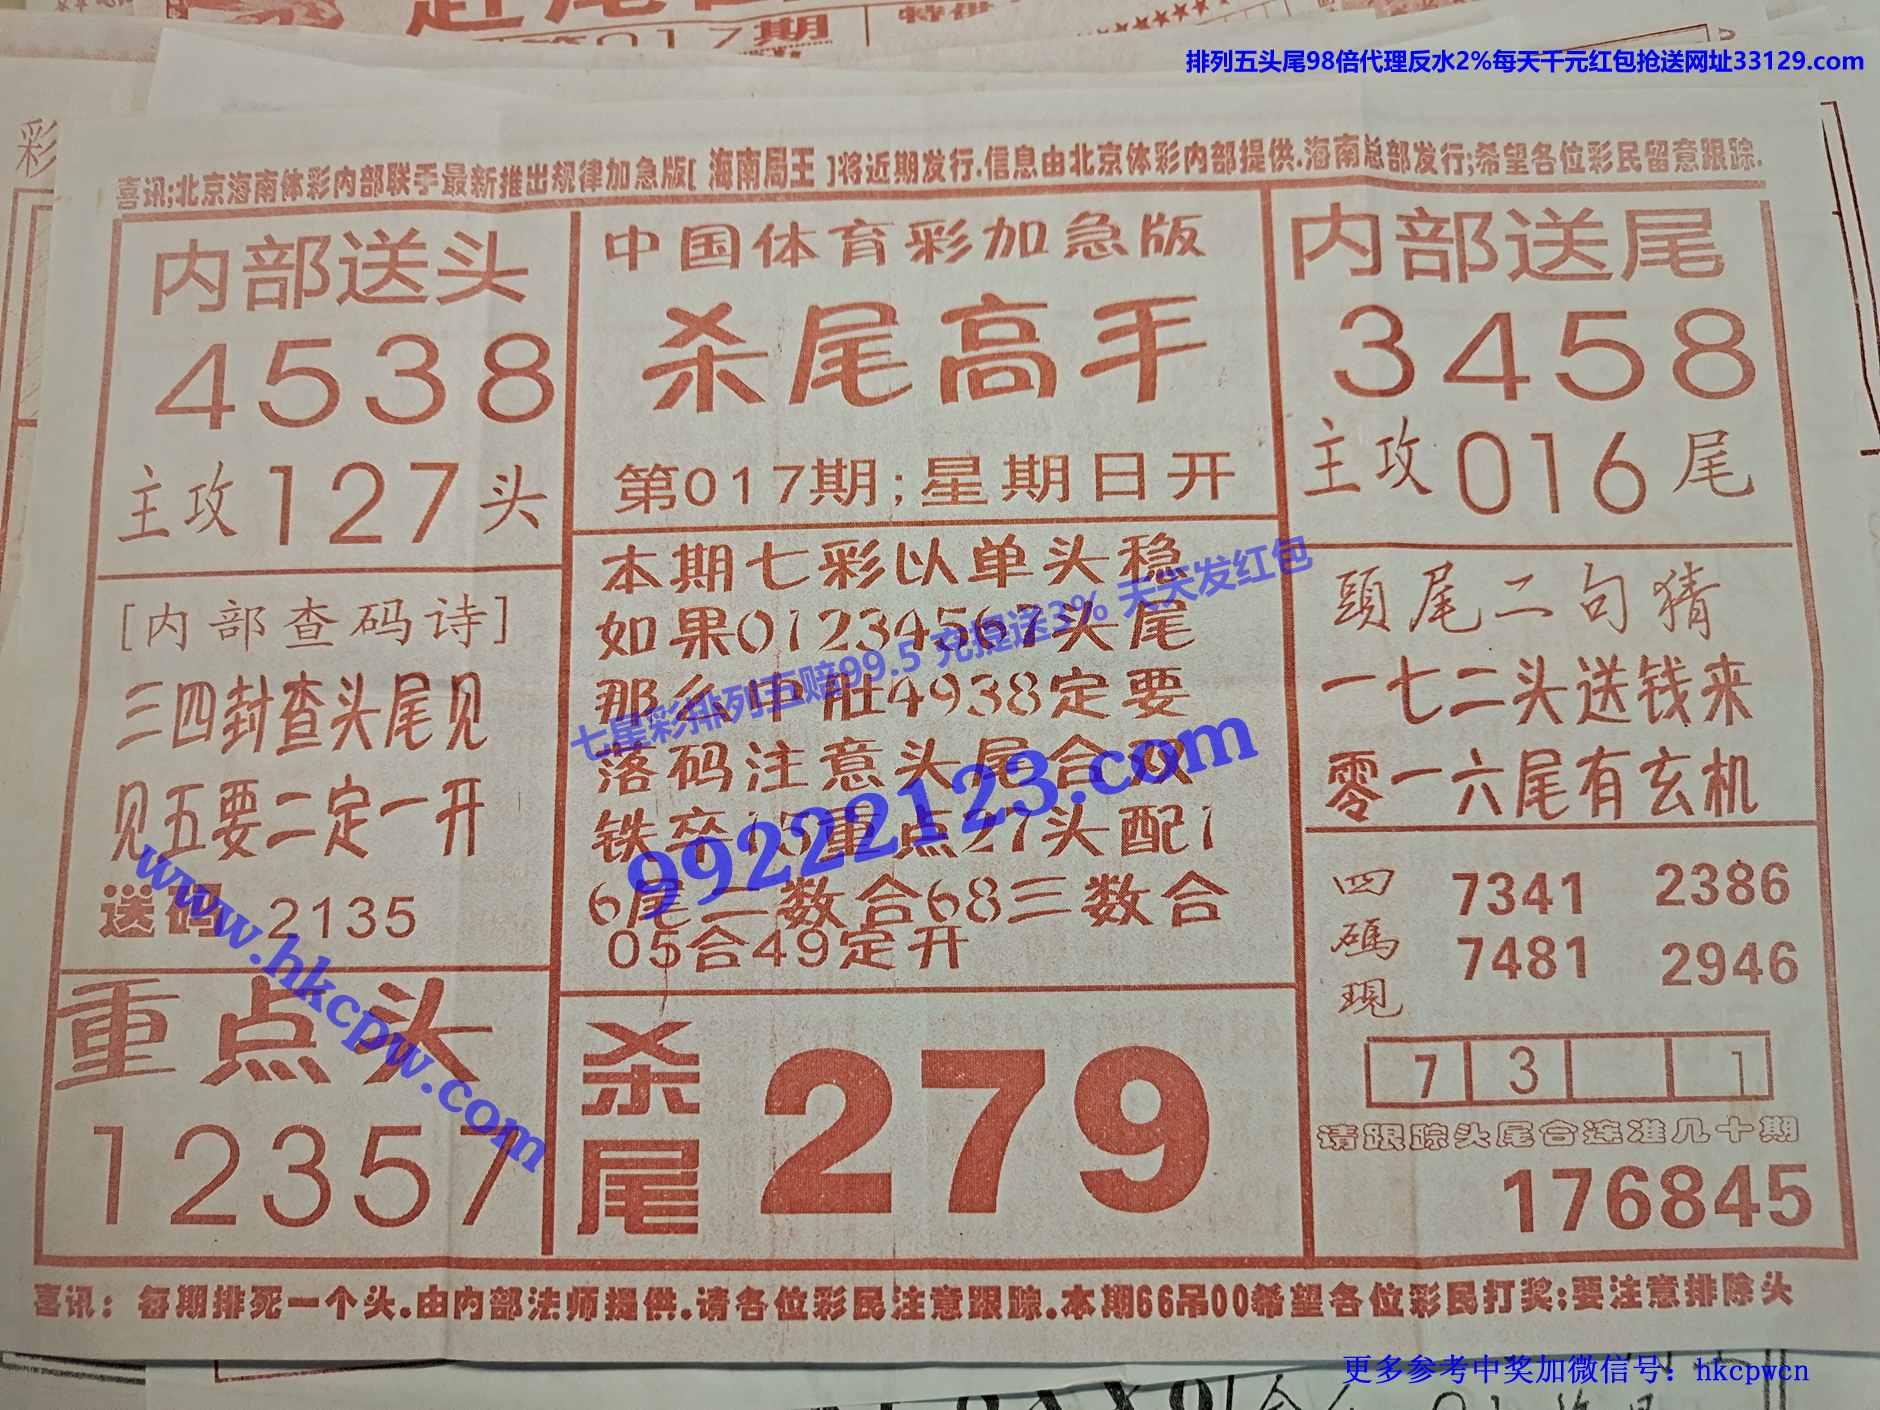 第017期
特供
排列五头尾98倍代理反水2%每天千元红包抢送网址33129.com
彩
喜讯;北京海南体彩内部联手最新推出规律加急版[ 海南局王 ]将近期发行.信息由北京体彩内部提供.海南总部发行;希望各位彩民留意跟踪.
内部送头
4538
主攻127头
[内部查码诗]
三四封查头尾见
见五要二定一开
送码 2135
重点头
12357
中国体育彩加急版
杀尾高手
第017期;星期日开
本期七彩以单头稳
如果01234567头尾
那么中肚4938定要
落码注意头尾合双
铁卒15重点27头配1
6尾二数合68三数合
05合49定开
杀尾
279
内部送尾
3458
主攻016尾
頭尾二句猜
一七二头送钱来
零一六尾有玄机
四碼現
7341 2386
7481 2946
7 3 1
请跟踪头尾合连准几十期
176845
喜讯：每期排死一个头.由内部法师提供.请各位彩民注意跟踪.本期66吊00希望各位彩民打奖;要注意排除头
七星彩排列五赔99.5 充提送3% 天天发红包
99222123.com
www.hkcpw.com
更多参考中奖加微信号：hkcpwcn